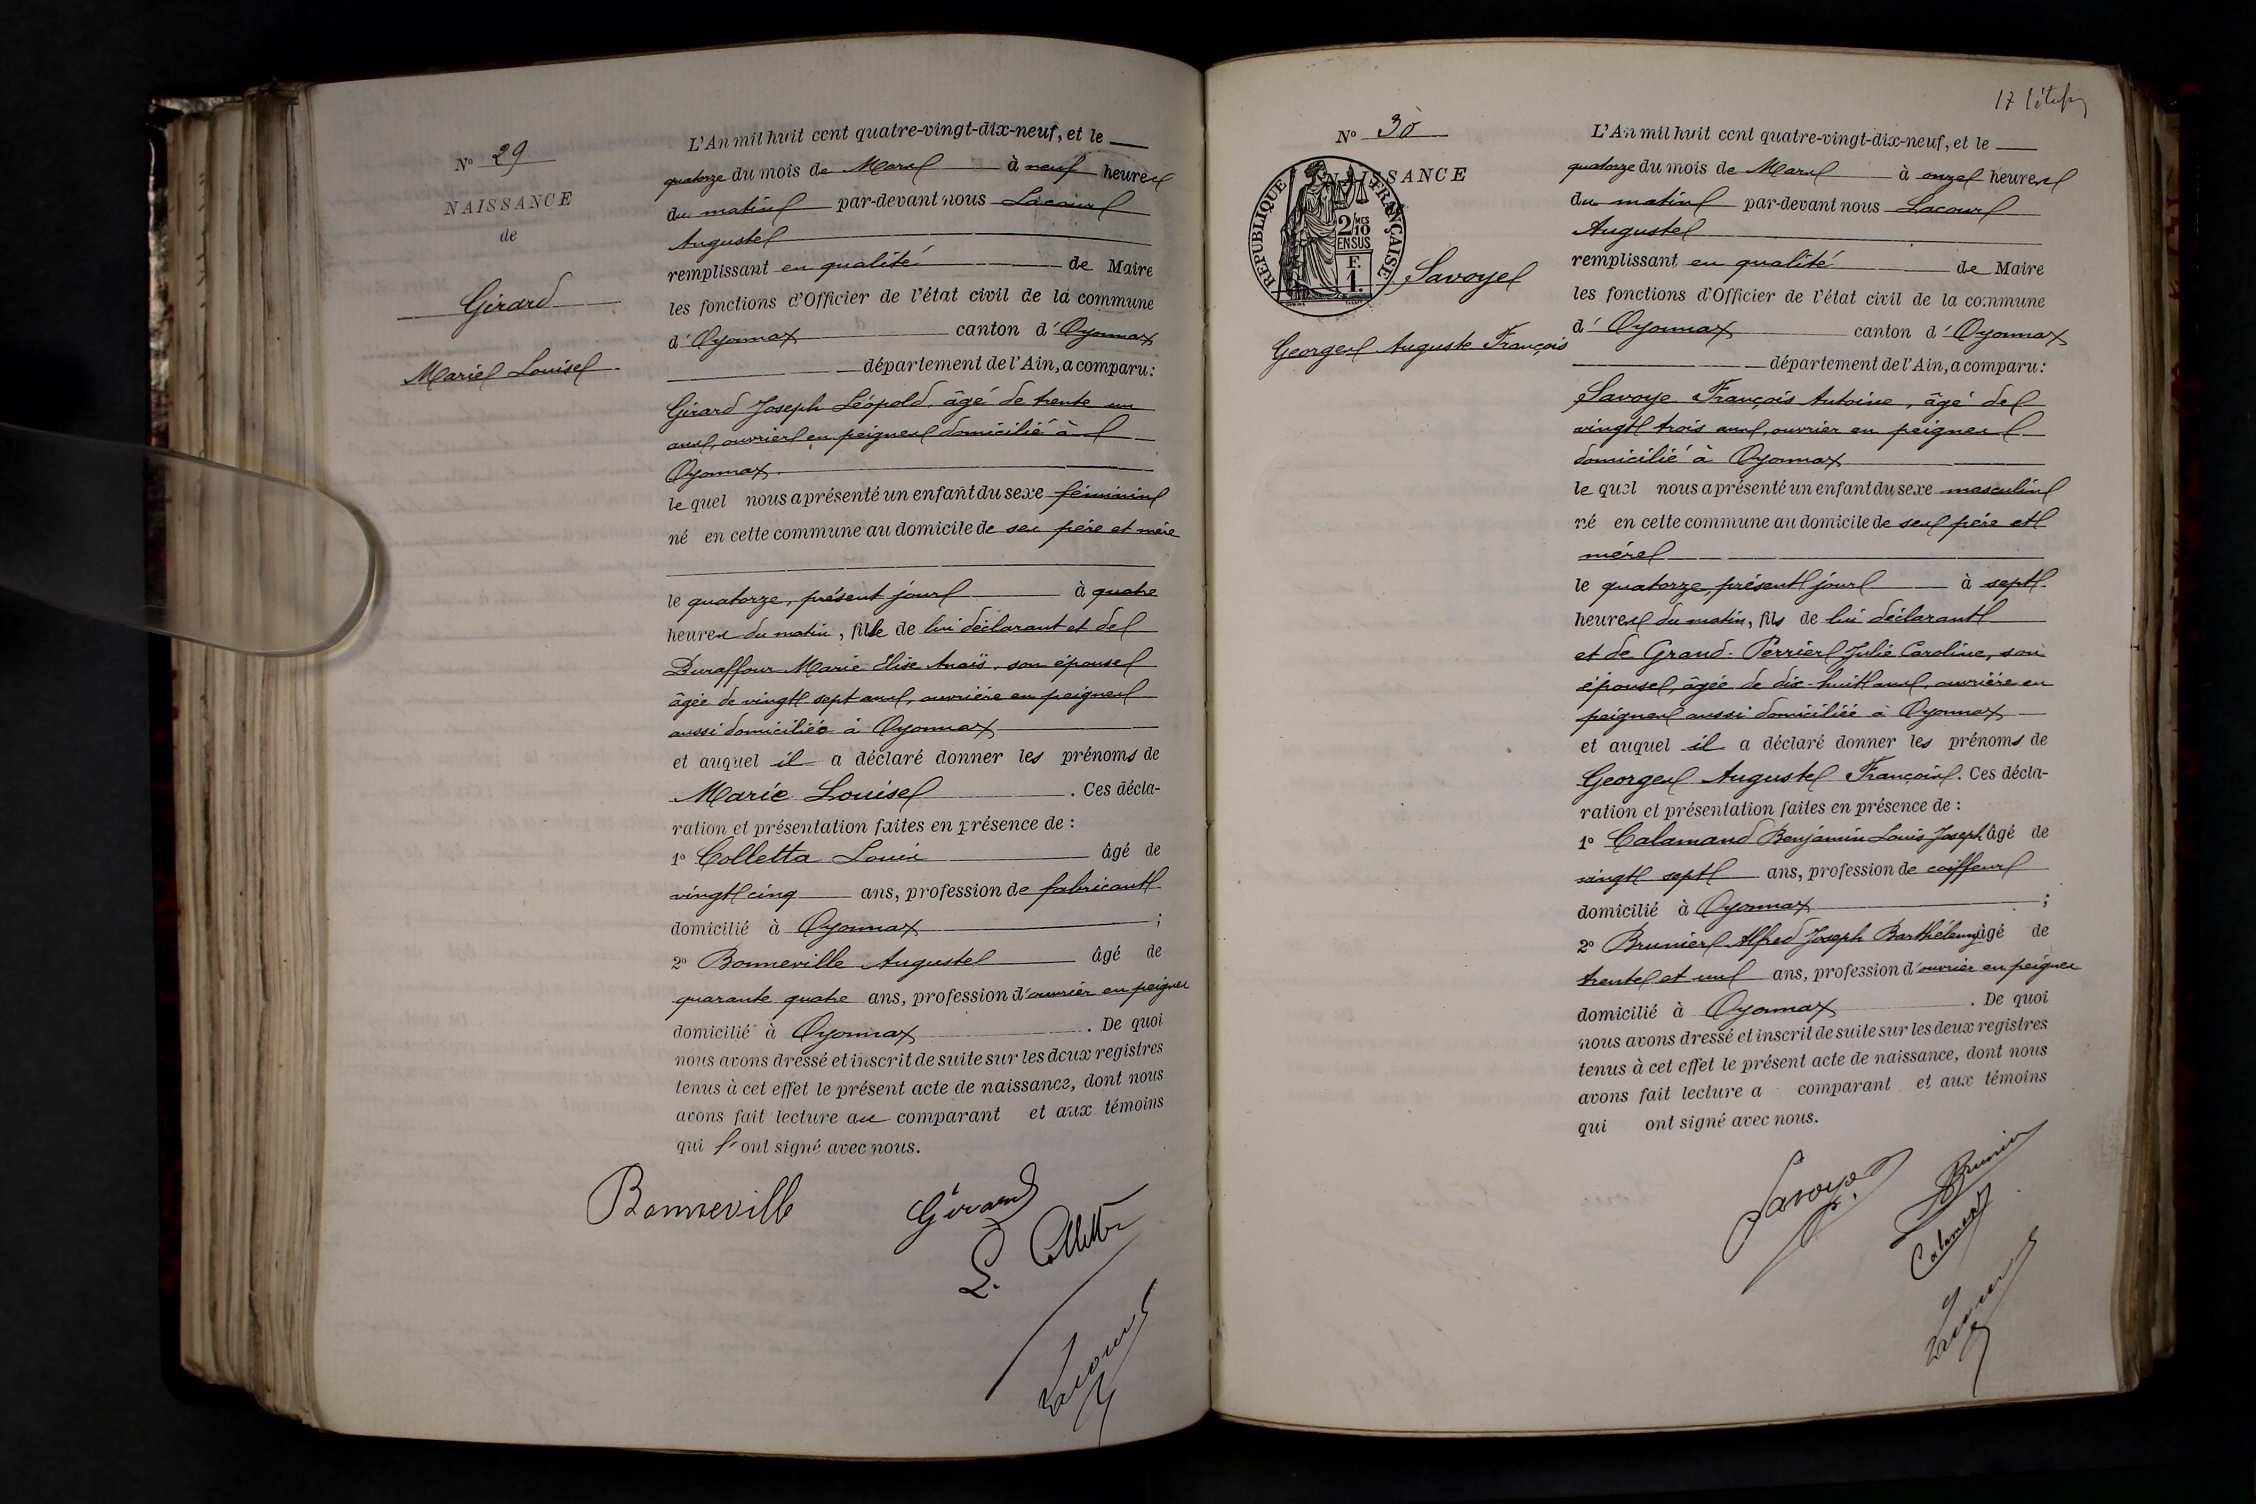 N° 29
NAISSANCE
de
Girard
Marie Louise
L'An mil huit cent quatre-vingt-dix-neuf, et le
quatorze du mois de Mars à neuf heures
du matin par-devant nous Lacour
Auguste
remplissant en qualité de Maire
les fonctions d'Officier de l'état civil de la commune
d'Oyonnax canton d'Oyonnax
département de l'Ain, a comparu :
Girard Joseph Léopold, âgé de trente un
ans, ouvrier en peignes domicilié à
Oyonnax.
le quel nous a présenté un enfant du sexe féminin
né en cette commune au domicile de ses père et mère
le quatorze, présent jour à quatre
heures du matin, fille de lui déclarant et de
Duraffour Marie Elise Anaïs, son épouse
âgée de vingt sept ans, ouvrière en peignes
aussi domiciliée à Oyonnax
et auquel il a déclaré donner les prénoms de
Marie Louise . Ces décla-
ration et présentation faites en présence de :
1° Colletta Louis âgé de
vingt cinq ans, profession de fabricant
domicilié à Oyonnax ;
2° Bonneville Auguste âgé de
quarante quatre ans, profession d'ouvrier en peignes
domicilié à Oyonnax . De quoi
nous avons dressé et inscrit de suite sur les deux registres
tenus à cet effet le présent acte de naissance, dont nous
avons fait lecture au comparant et aux témoins
qui l'ont signé avec nous.
Bonneville Girard
L. Colletta
Lacour
17
N° 30
NAISSANCE
RÉPUBLIQUE FRANÇAISE
2/10 MES
EN SUS
F.
1.
Savoye
Georges Auguste François
L'An mil huit cent quatre-vingt-dix-neuf, et le
quatorze du mois de Mars à onze heures
du matin par-devant nous Lacour
Auguste
remplissant en qualité de Maire
les fonctions d'Officier de l'état civil de la commune
d'Oyonnax canton d'Oyonnax
département de l'Ain, a comparu :
Savoye François Antoine, âgé de
vingt trois ans, ouvrier en peignes
domicilié à Oyonnax
le quel nous a présenté un enfant du sexe masculin
né en cette commune au domicile de ses père et
mère
le quatorze, présent jour à sept
heures du matin, fils de lui déclarant
et de Grand-Perrier Julie Caroline, son
épouse, âgée de dix-huit ans, ouvrière en
peignes aussi domiciliée à Oyonnax
et auquel il a déclaré donner les prénoms de
Georges Auguste François. Ces décla-
ration et présentation faites en présence de :
1° Calamand Benjamin Louis Joseph âgé de
vingt sept ans, profession de coiffeur
domicilié à Oyonnax ;
2° Brunier Alfred Joseph Barthélemy âgé de
trente et un ans, profession d'ouvrier en peignes
domicilié à Oyonnax . De quoi
nous avons dressé et inscrit de suite sur les deux registres
tenus à cet effet le présent acte de naissance, dont nous
avons fait lecture a comparant et aux témoins
qui ont signé avec nous.
Savoye Brunier
Calamand
Lacour